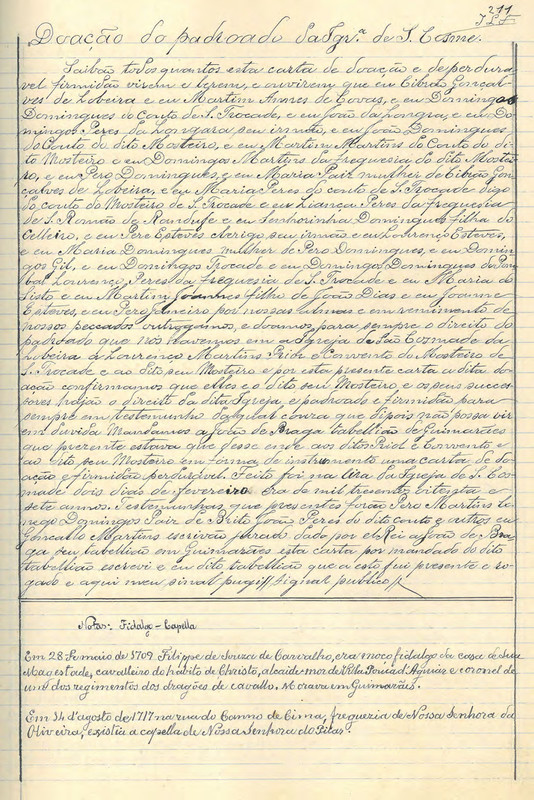 211
Doação do padroado da Igr.ª de S. Cosme.
Saibão todos quantos esta carta de doação e de perdura
vel firmidão virem e lerem, e ouvirem que eu Cibrão Gonçal
ves de Lobeira e eu Martim Annes de Covas, e eu Domingos
Domingues do Conto de S. Trocade, e eu João da Longra, e eu Do
mingos Peres da Longara, seu irmão, e eu João Domingues
do Conto do dito Mosteiro, e eu Martim Martins do Conto do di
to Mosteiro e eu Domingos Martins da freguesia do dito Mostei
ro, e eu Pero Domingues, e eu Maria Pais mulher de Cibrão Gon
çalves de Lobeira, e eu Maria Peres do conto de S. Trocade digo
do conto do Mosteiro de S. Trocade e eu Sancha Peres da freguesia
de S. Romão de Rendufe e eu Senhorinha Domingues filha do
Celleiro, e eu Pere Esteves clerigo, seu irmão e eu Lourenço Esteves,
e eu Maria Domingues mulher de Pero Domingues, e eu Domin
gos Gil, e eu Domingos Trocade e eu Domingos Domingues do Pom
bal Lourenço Peres da freguesia de S. Trocade e eu Maria do
Sisto e eu Martim Joannes filho de João Dias e eu Joanne
Esteves, e eu Pero Janeiro por nossas almas e em remimento de
nossos peccados outrogamos, e doamos para sempre o direito do
padroado que nós havemos em a Igreja de São Cosmade da
Lobeira a Lourenço Martins Priol e Convento do Mosteiro de
S. Trocade e ao dito seu Mosteiro e por esta presente carta a dita do
ação confirmamos que elles e o dito seu Mosteiro, e os seus succes
sores hajão o direito da dita Igreja, e padroado e firmidão para
sempre em testemunho da qual couza que depois não possa vir
em duvida Mandamos a João de Braga tabellião de Guimarães
que prezente estava que desse ende aos ditos Priol e Convento e
ao dito seu Mosteiro em forma de instrumento uma carta de do
ação e firmidão perduravel. Feito foi na eira da Igreja de S. Cos
made dois dias de fevereiro era de mil tresentos e trinta e
sete annos. Testemunhas que presentes forão Pero Martins
Domingos Pais de Brito João Peres do dito conto e outros eu
Goncallo Martins escrivão jurado dado por el Rei a João de Bra
ga seu tabellião em Guimarães esta carta por mandado do dito
tabellião escrevi e eu dito tabellião que a esto fui presente e ro
gado e aqui meu sinal pugi // Signal publico //
Notas: Fidalgo - Capella
Em 28 de maio de 1709 Filippe de Souza de Carvalho, era moço fidalgo da casa de Sua
Magestade, cavalleiro do habito de Christo, alcaide mor de Villa Pouca d'Aguiar e coronel de
um dos regimentos dos dragões de cavallo. Morava em Guimarães.
Em 14 d'agosto de 1717 na rua do Canno de Cima, freguezia de Nossa Senhora da
Oliveira, existia a capella de Nossa Senhora do Pilar.